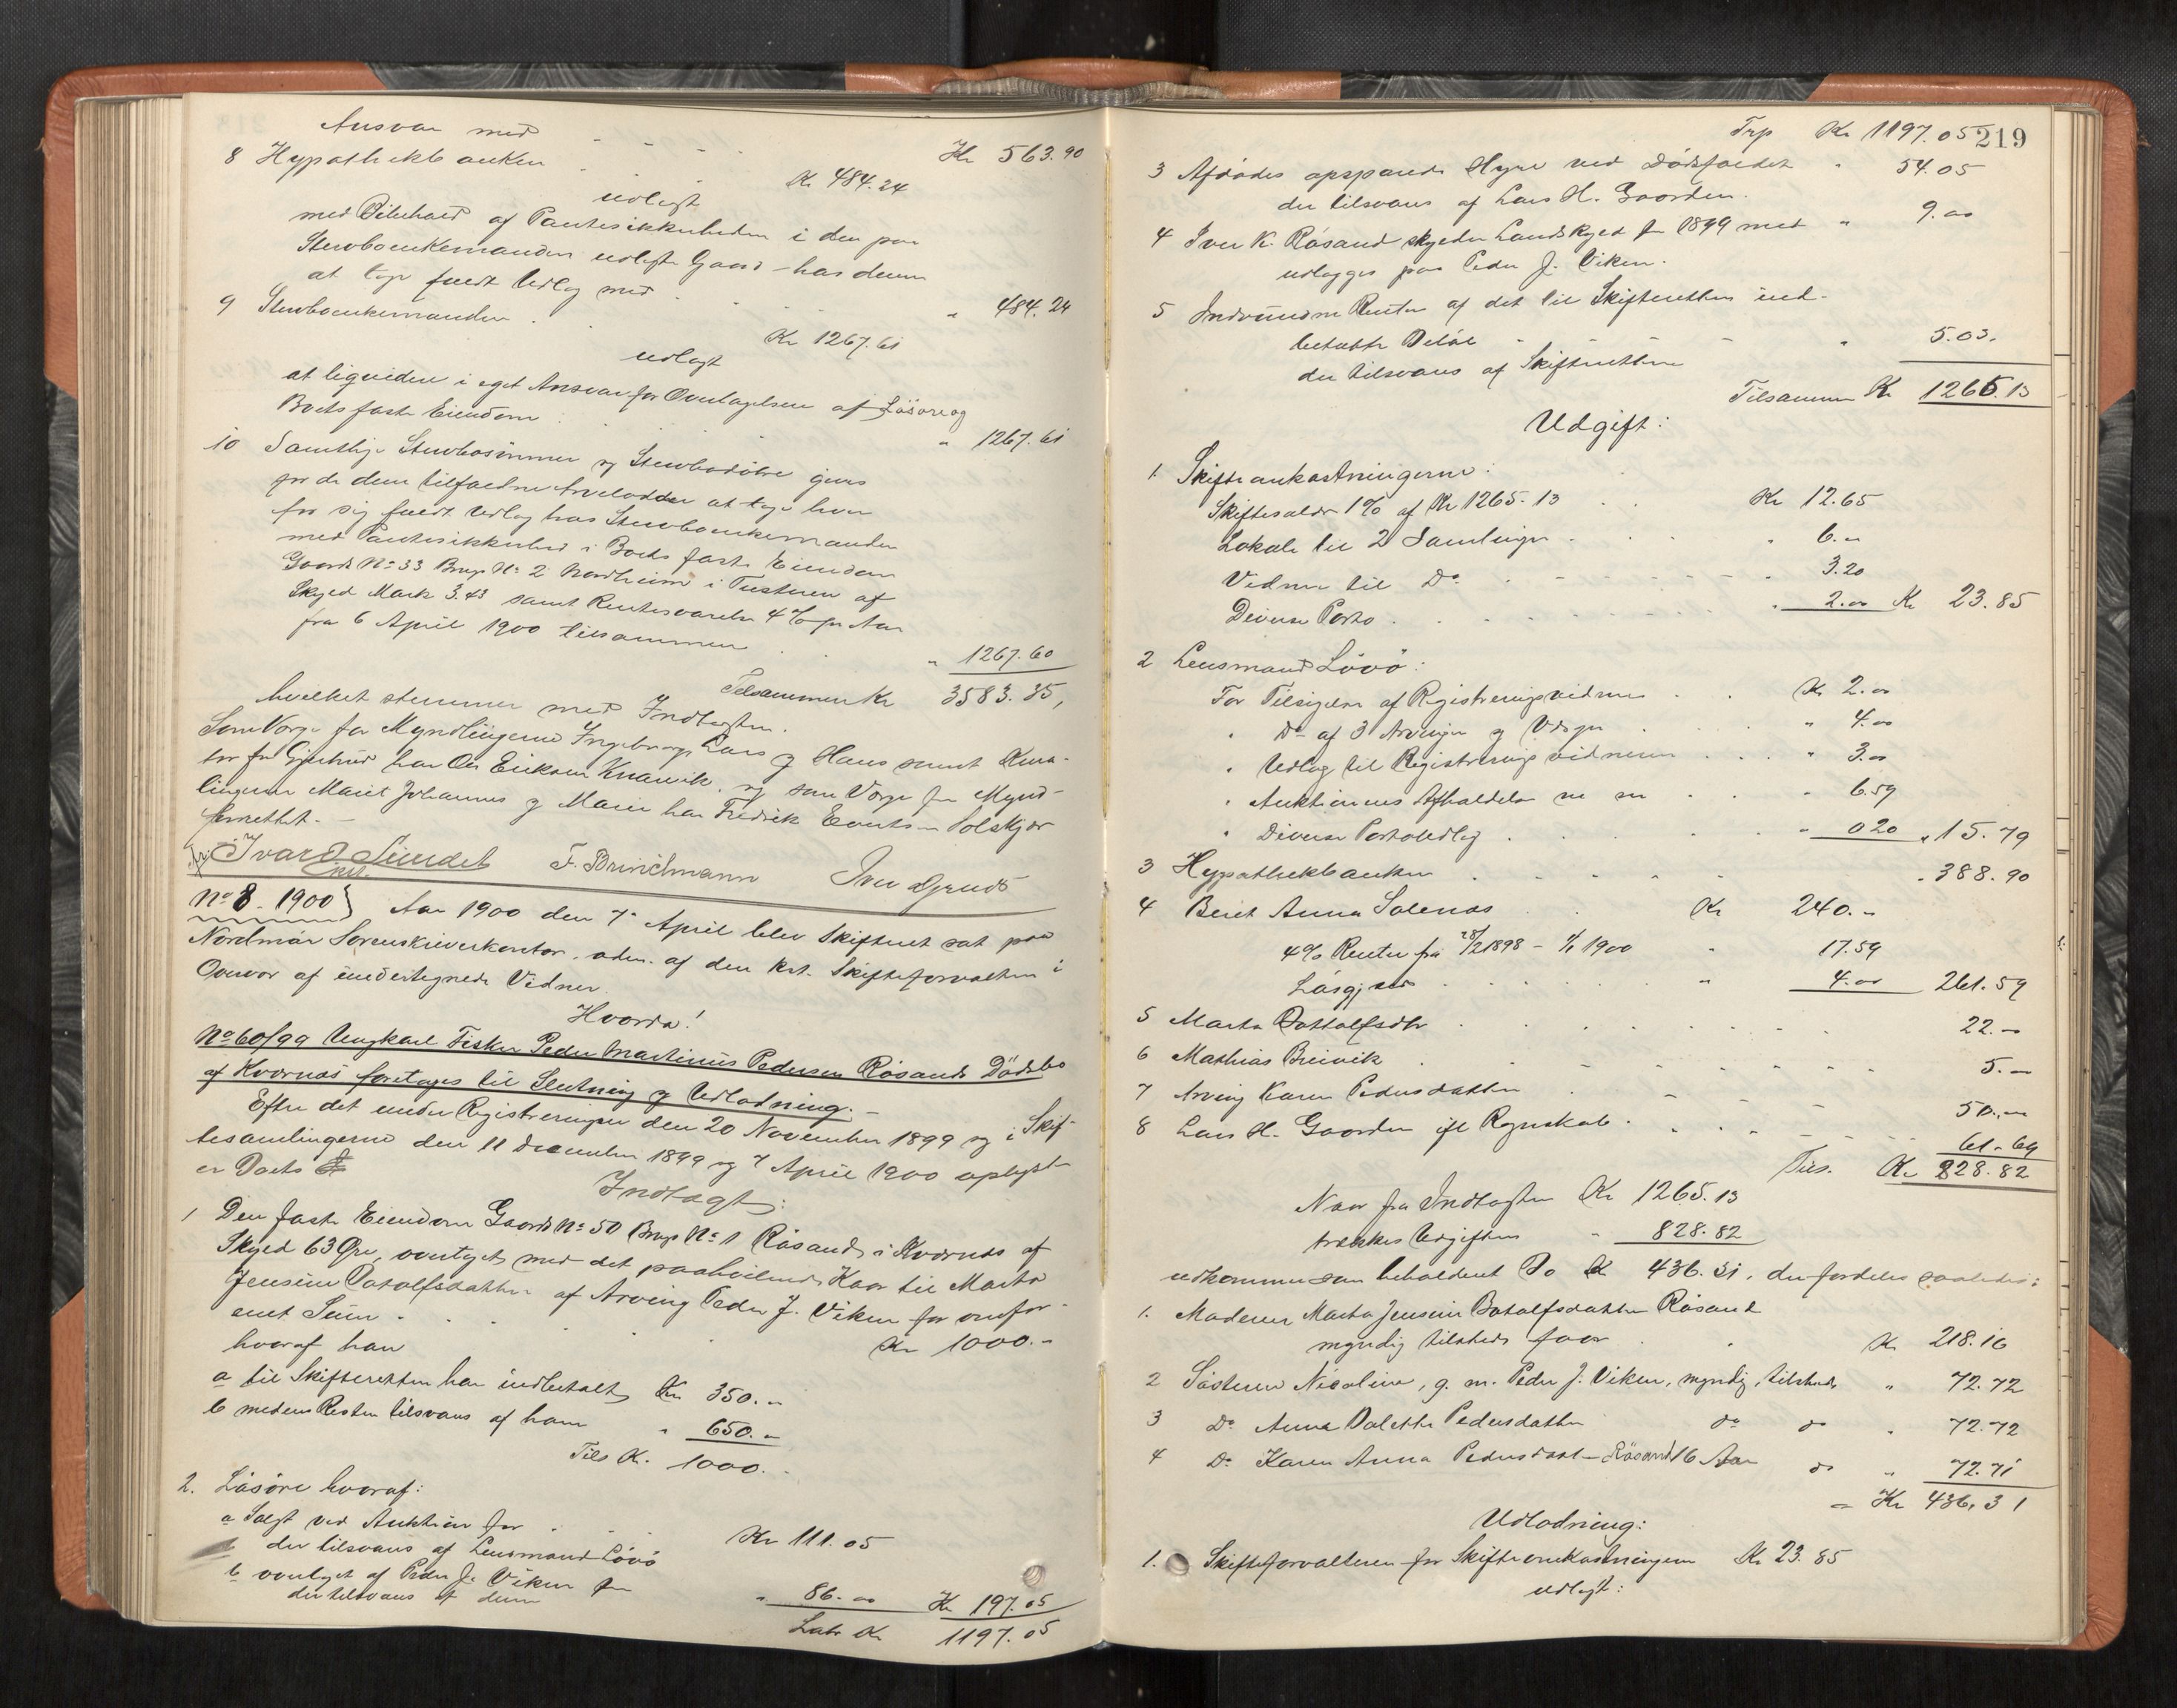 Ansvar med . . . Kr 563.90
8 Hypothekbanken . . Kr 484.24
udlagt
med Bibehold af Pantesikkerheden i den paa
Stervboenkemanden udlagte Gaard – hos denne
at tage fuldt Udlæg med . . . " 484.24
9 Stervboenkemanden . . Kr 1267.61
udlagt
at liqvidere i eget Ansvar for Overtagelsen af Løsøre og
Boets faste Eiendom . . . " 1267.61
10 Samtlige Stervbosønner og Stervbodøtre gives
for de dem tilfaldne Arvelodder at tage hver
for sig fuldt Udlæg hos Stervboenkemanden
med Pantesikkerhed i Boets faste Eiendom
Gaards No 33 Brugs No 2 Nordheim i Tusteren af
Skyld Mark 3.43 samt Rentesvarelse 4 % pr Aar
fra 6 April 1900 tilsammen . . " 1267.60
Tilsammen Kr 3583.35,
hvilket stemmer med Indtægten.
Som Verge for Myndlingerne Ingeborg, Lars og Hans samt Kura-
tor for Gjertrud har Ole Eriksen Knarvik, og som Verge for Mynd-
lingerne Marit Johannes og Marie har Fredrik Evertsen Solskjær
fremettet. –
Ivar O Sundet F. Brinchmann Iver Grud
No 8. 1900} Aar 1900 den 7de April blev Skifteret sat paa
Nordmør Sorenskriverkontor, adm. af den kst. Skifteforvalter i
Overvær af undertegnede Vidner.
Hvorda!
No 60/99 Ungkarl Fisker Peder Martinus Pedersen Røsands Dødsbo
af Kvernæs foretages til Slutning og Udlodning. –
Efter det under Registreringen den 20 November 1899 og i Skif-
tesamlingerne den 11 December 1899 og 7 April 1900 oplyste
er Boets
Indtægt:
1 Den faste Eiendom Gaards No 50 Brugs No 1 Røsand i Kvernæs af
Skyld 63 Øre, overtaget med det paahvilende Kaar til Marta
Jensine Botolfsdatter af Arving Peder J. Viken for omfor-
enet Sum . . . . . Kr 1000.-
hvoraf han
a til Skifteretten har indbetalt Kr 350.-
b medens Resten tilsvares af ham " 650.-
Tils Kr. 1000.-
2. Løsøre hvoraf:
a Solgt ved Auktion for . . . Kr 111.05
der tilsvares af Lensmand Løvø
b overtaget af Peder J. Viken for " 86.00 Kr 197.05
der tilsvares af denne
Latr Kr 1197.05
Trp Kr 1197.05 219
3 Afdødes opsparede Hyre ved Dødsfaldet " 54.05
der tilsvares af Lars H. Gaarden.
4 Iver K. Røsand skylder Landskyld for 1899 med " 9.00
udlægges paa Peder J. Viken.
5 Indvundne Renter af det til Skifteretten ind-
betalte Beløb . . . " 5.03.
der tilsvares af Skifteretten
Tilsammen Kr 1265.13
Udgift:
1. Skifteomkostningerne:
Skiftesalær 1% af Kr 1265.13 . . Kr 12.65
Lokale til 2 Samlinger . . . " 6.-
Vidner til Do . . . . " 3.20
Diverse Porto . . . . " 2.00 Kr 23.85
2 Lensmand Løvø:
For Tilsigelse af Registreringsvidner . . Kr 2.00
" Do af 3 Arvinger og Verger . . " 4.00
" Udlæg til Registreringsvidnerne . . . " 3.00
" Auktionens Afholdelse m m . . " 6.59
" Diverse Portoudlæg . . . " 0 20 " 15.79
3 Hypothekbanken . . . . . " 388.90
4 Berit Anna Solenæs . . Kr 240.-
4% Renter fra 28/2 1898 – 1/1 1900 " 17.59
. . . . . " 4.00 261.59
5 Marta Botolfsdtr . . . . . 22.-
6 Mathias Breivik . . . . . 5.-
7 Arving Karen Pedersdatter . . . 50.-
8 Lars H. Gaarden ifl Regnskab . . . 61.69
Tils. Kr 828.82
Naar fra Indtægten Kr 1265.13
trækkes Udgiften " 828.82
udkommer som beholdent Bo Kr 436.31, der fordeles saaledes:
1. Moderen Marta Jensine Botolfsdatter Røsand
myndig tilstede faar . . Kr 218.16
2 Søsteren Nicoline, g. m. Peder J. Viken, myndig, tilstede " 72.72
3 Do Anna Dolette Pedersdatter do do " 72.72
4 Do Karen Anna Pedersdatt- Røsand 16 Aar do " 72.71
= Kr 436.31
Udlodning:
1. Skifteforvalteren for Skifteomkostningerne Kr 23.85
udlagt: